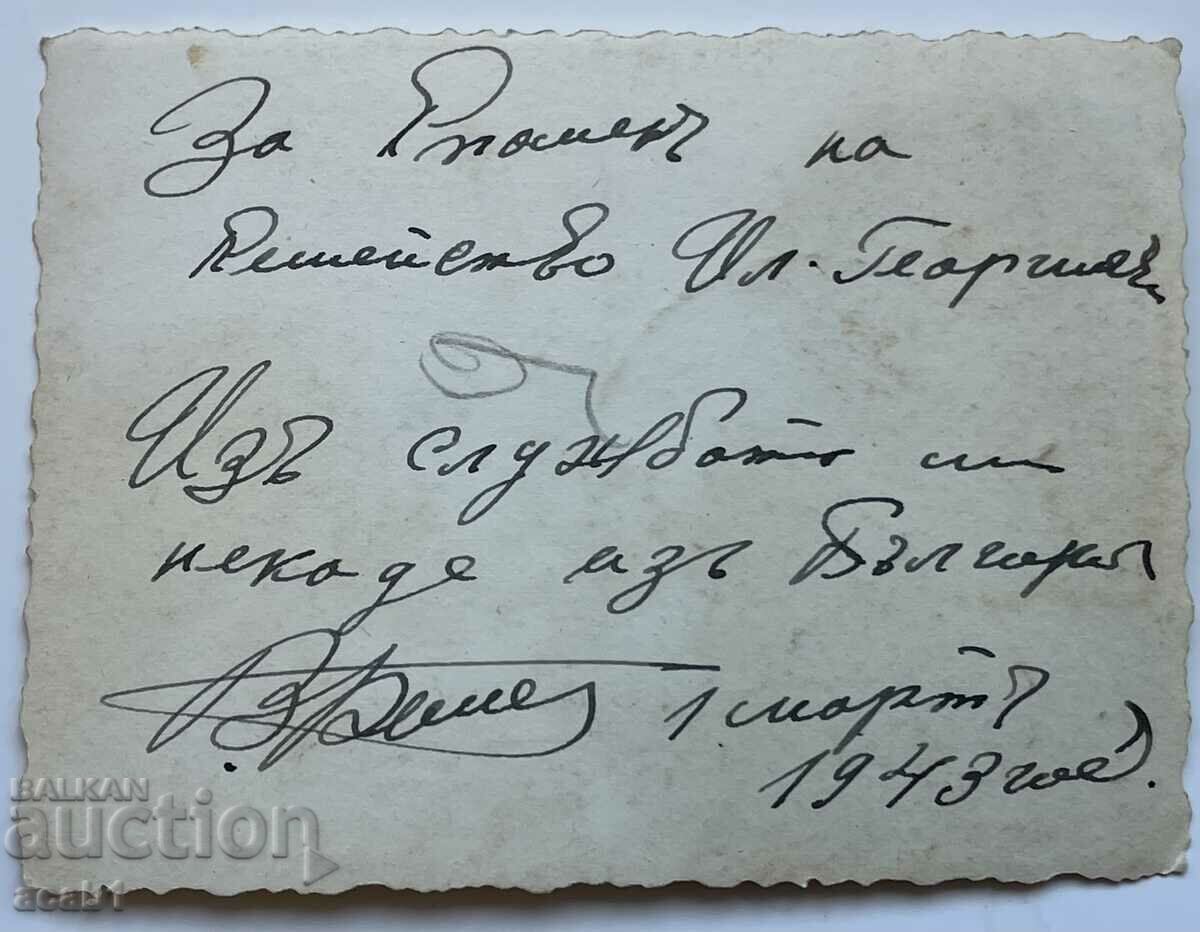 За споменъ на
семейство Ил. Георгиеви
Изъ службата ми
некаде изъ България
1 мартъ
1943 год.
BALKAN
auction
acab1